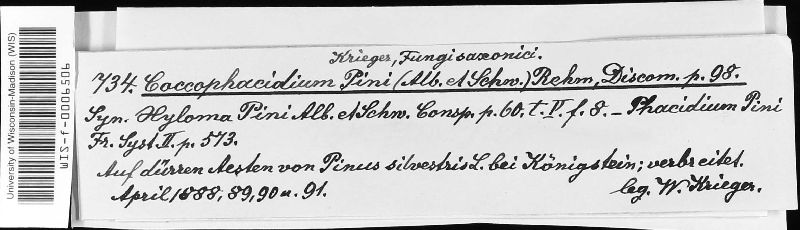 University of Wisconsin-Madison (WIS)
WIS-f-0006506
Krieger, Fungi saxonici.
734. Coccophacidium Pini (Alb. et Schw.) Rehm, Discom. p. 98.
Syn. Xyloma Pini Alb. et Schw. Consp. p. 60, t. V. f. 8. – Phacidium Pini
Fr. Syst. II. p. 573.
Auf dürren Aesten von Pinus silvestris L. bei Königstein; verbreitet.
April 1888, 89, 90 u. 91.
leg. W. Krieger.